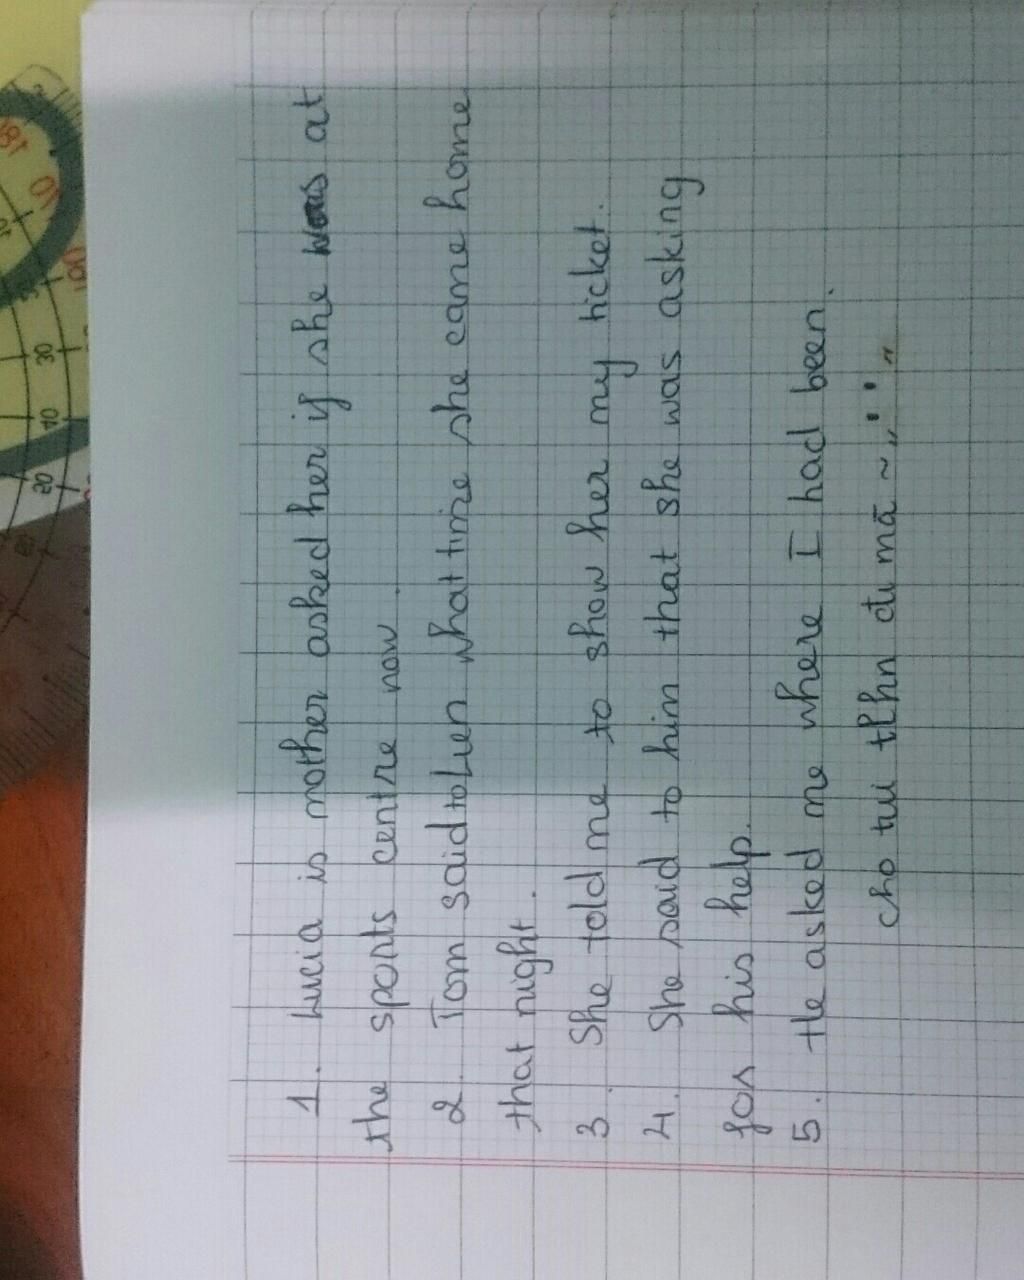 1. Lucia is mother asked her if she was at
the sports centre now.
2. Tom said to Luen what time she came home
that night.
3. She told me to show her my ticket.
4. She said to him that she was asking
for his help.
5. He asked me where I had been.
cho tui tlhn
180
30
40
20